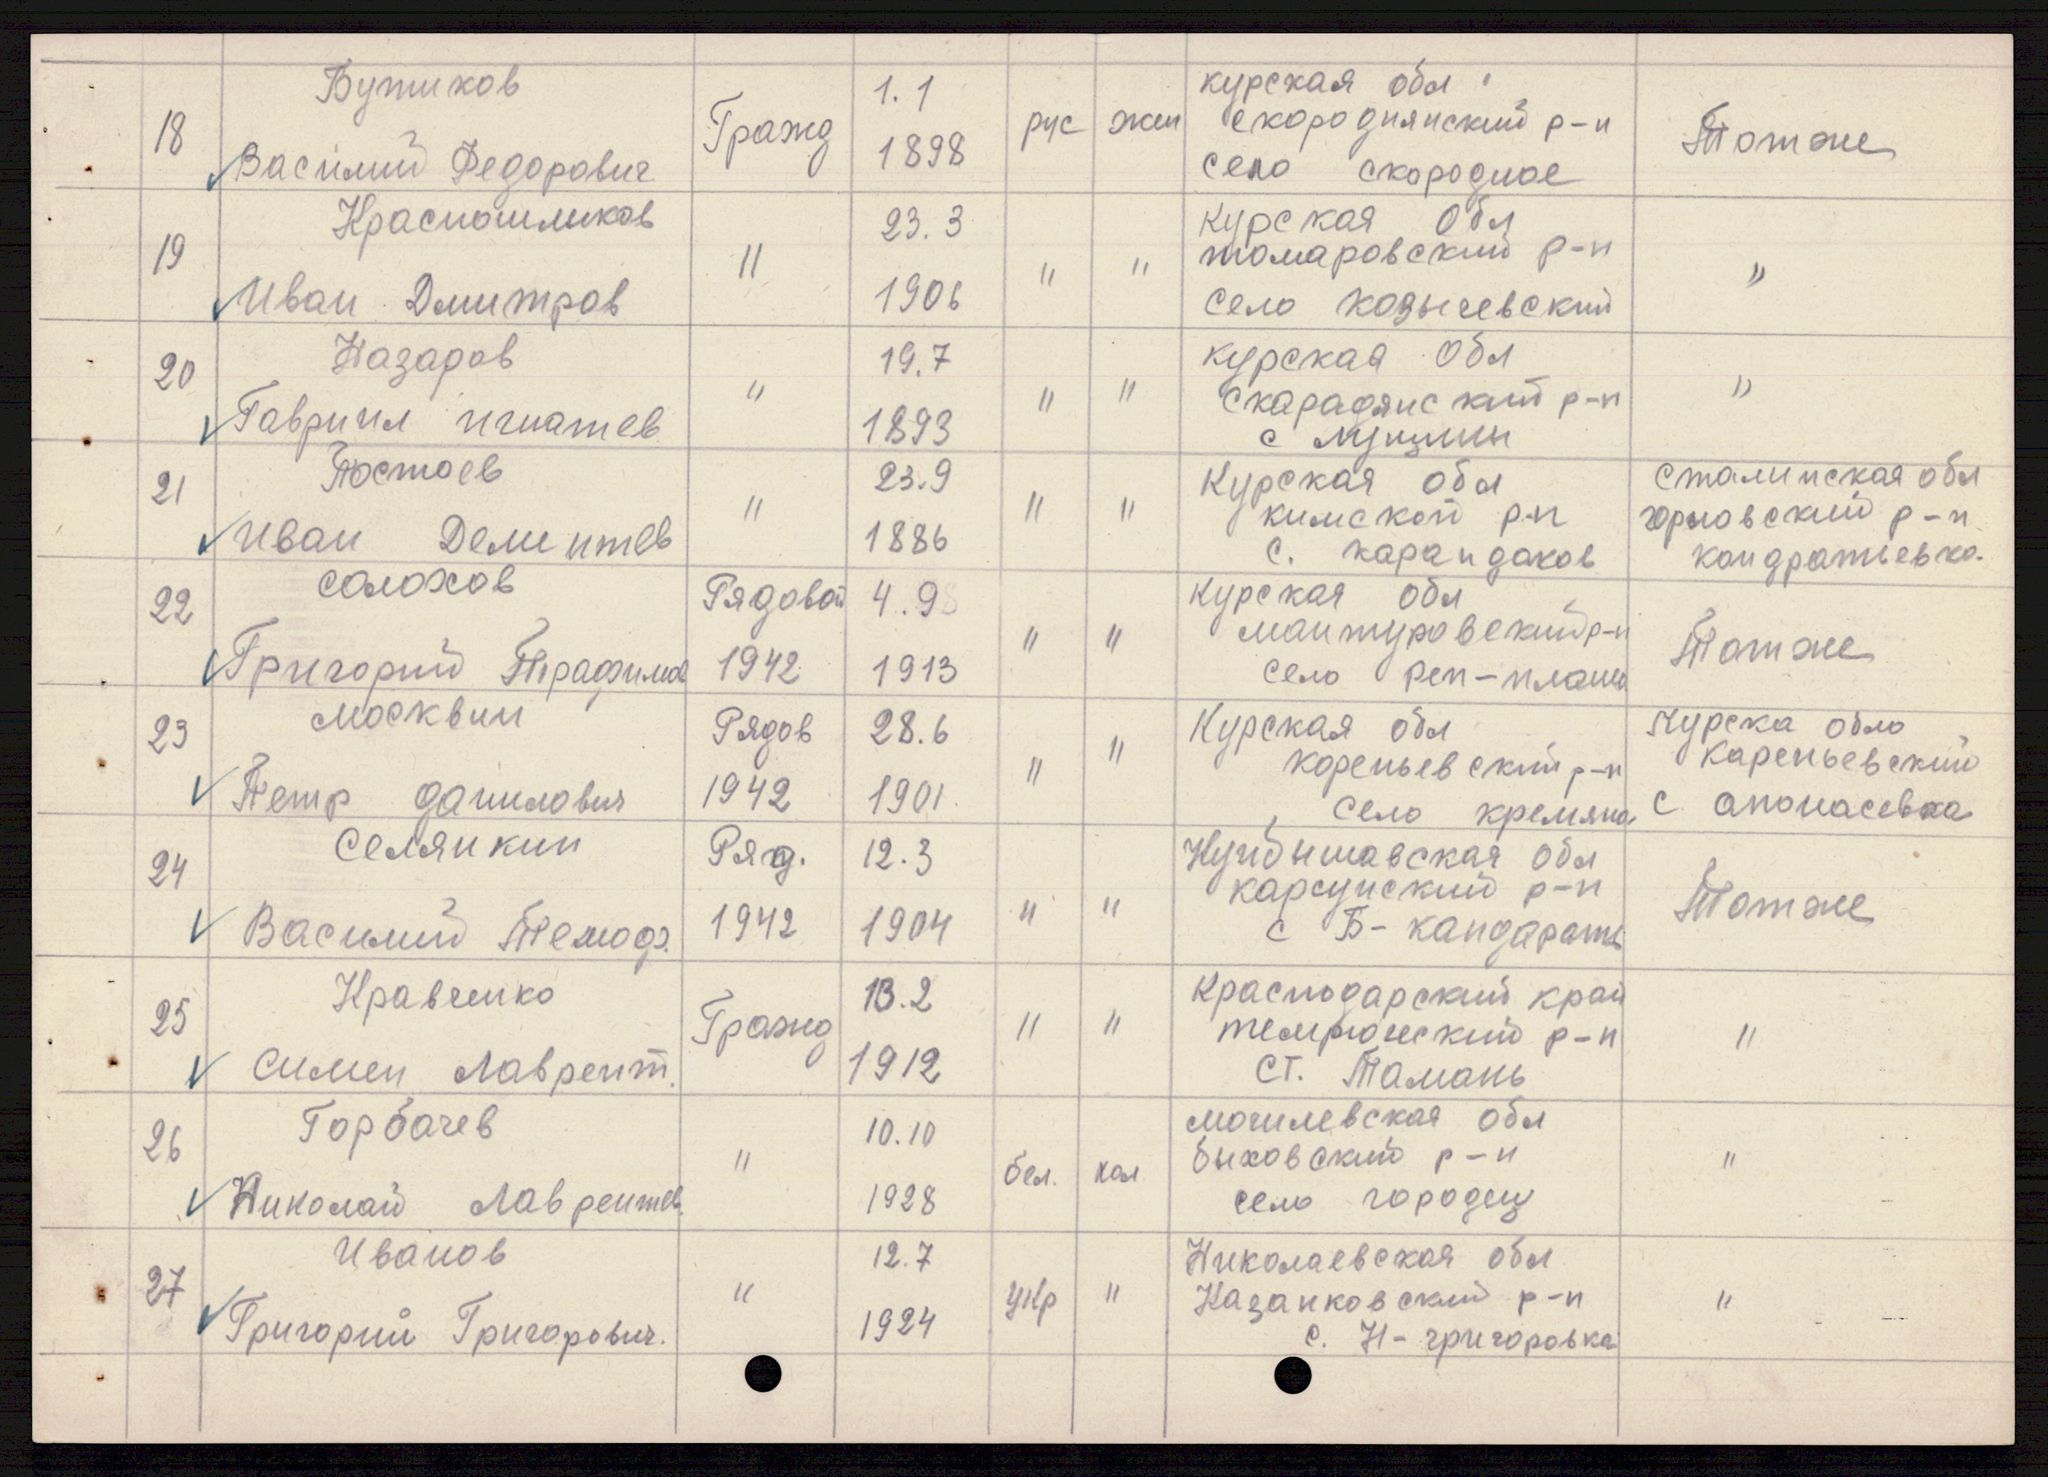 18 Бутиков Василий Федорович Гражд 1.1 1898 рус жен курская обл скороднянский р-н село скородное Тотже
19 Красношликов Иван Дмитров " 23.3 1906 " " Курская обл томаровский р-н село козычевский "
20 Назаров Гавриил игнатев " 19.7 1893 " " курская обл скарадянский р-н с лущины "
21 Постоев Иван Дементев " 23.9 1886 " " Курская обл кимской р-н с. карандаков сталинская обл горловский р-н кондратьевка.
22 солохов Григорий Трафимов Рядовой 1942 4.9 1913 " " Курская обл мантуровский р-н село реп-плата Тотже
23 москвин Петр данилович Рядов 1942 28.6 1901 " " Курская обл кореньевский р-н село кремяна Курска обло кареньевский с апонасевка
24 селянкин Василий Темоф. Ряд. 1942 12.3 1904 " " Куйбышавская обл карсунский р-н с Б-кандарать Тотже
25 Кравченко Симен Лаврент. Гражд 13.2 1912 " " Краснодарский край темрюнский р-н ст. Тамань "
26 Горбачев Николай Лаврентев. " 10.10 1928 бел. хол могилевская обл быховский р-н село городец "
27 Иванов Григорий Григорович. " 12.7 1924 укр " Николаевская обл Казанковский р-н с. Н-григоровка "